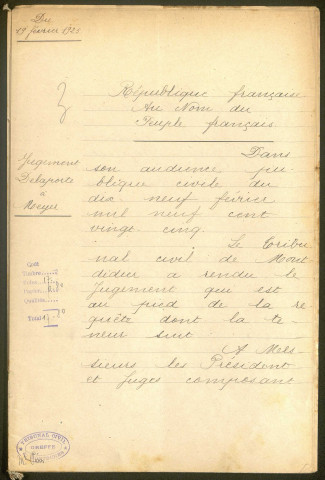 Du
19 février 1925
République française
Au Nom du
Peuple français
Jugement
Delaporte
&
Meyer
Dans
son audience pu-
blique civile du
dix neuf février
mil neuf cent
vingt cinq
Le Tribu
nal civil de Mont
didier a rendu le
Jugement qui est
au pied de la re
quête dont la te-
neur suit
A Mes-
sieurs les Président
et Juges composant
Coût
Timbre
Total
TRIBUNAL CIVIL
GREFFE